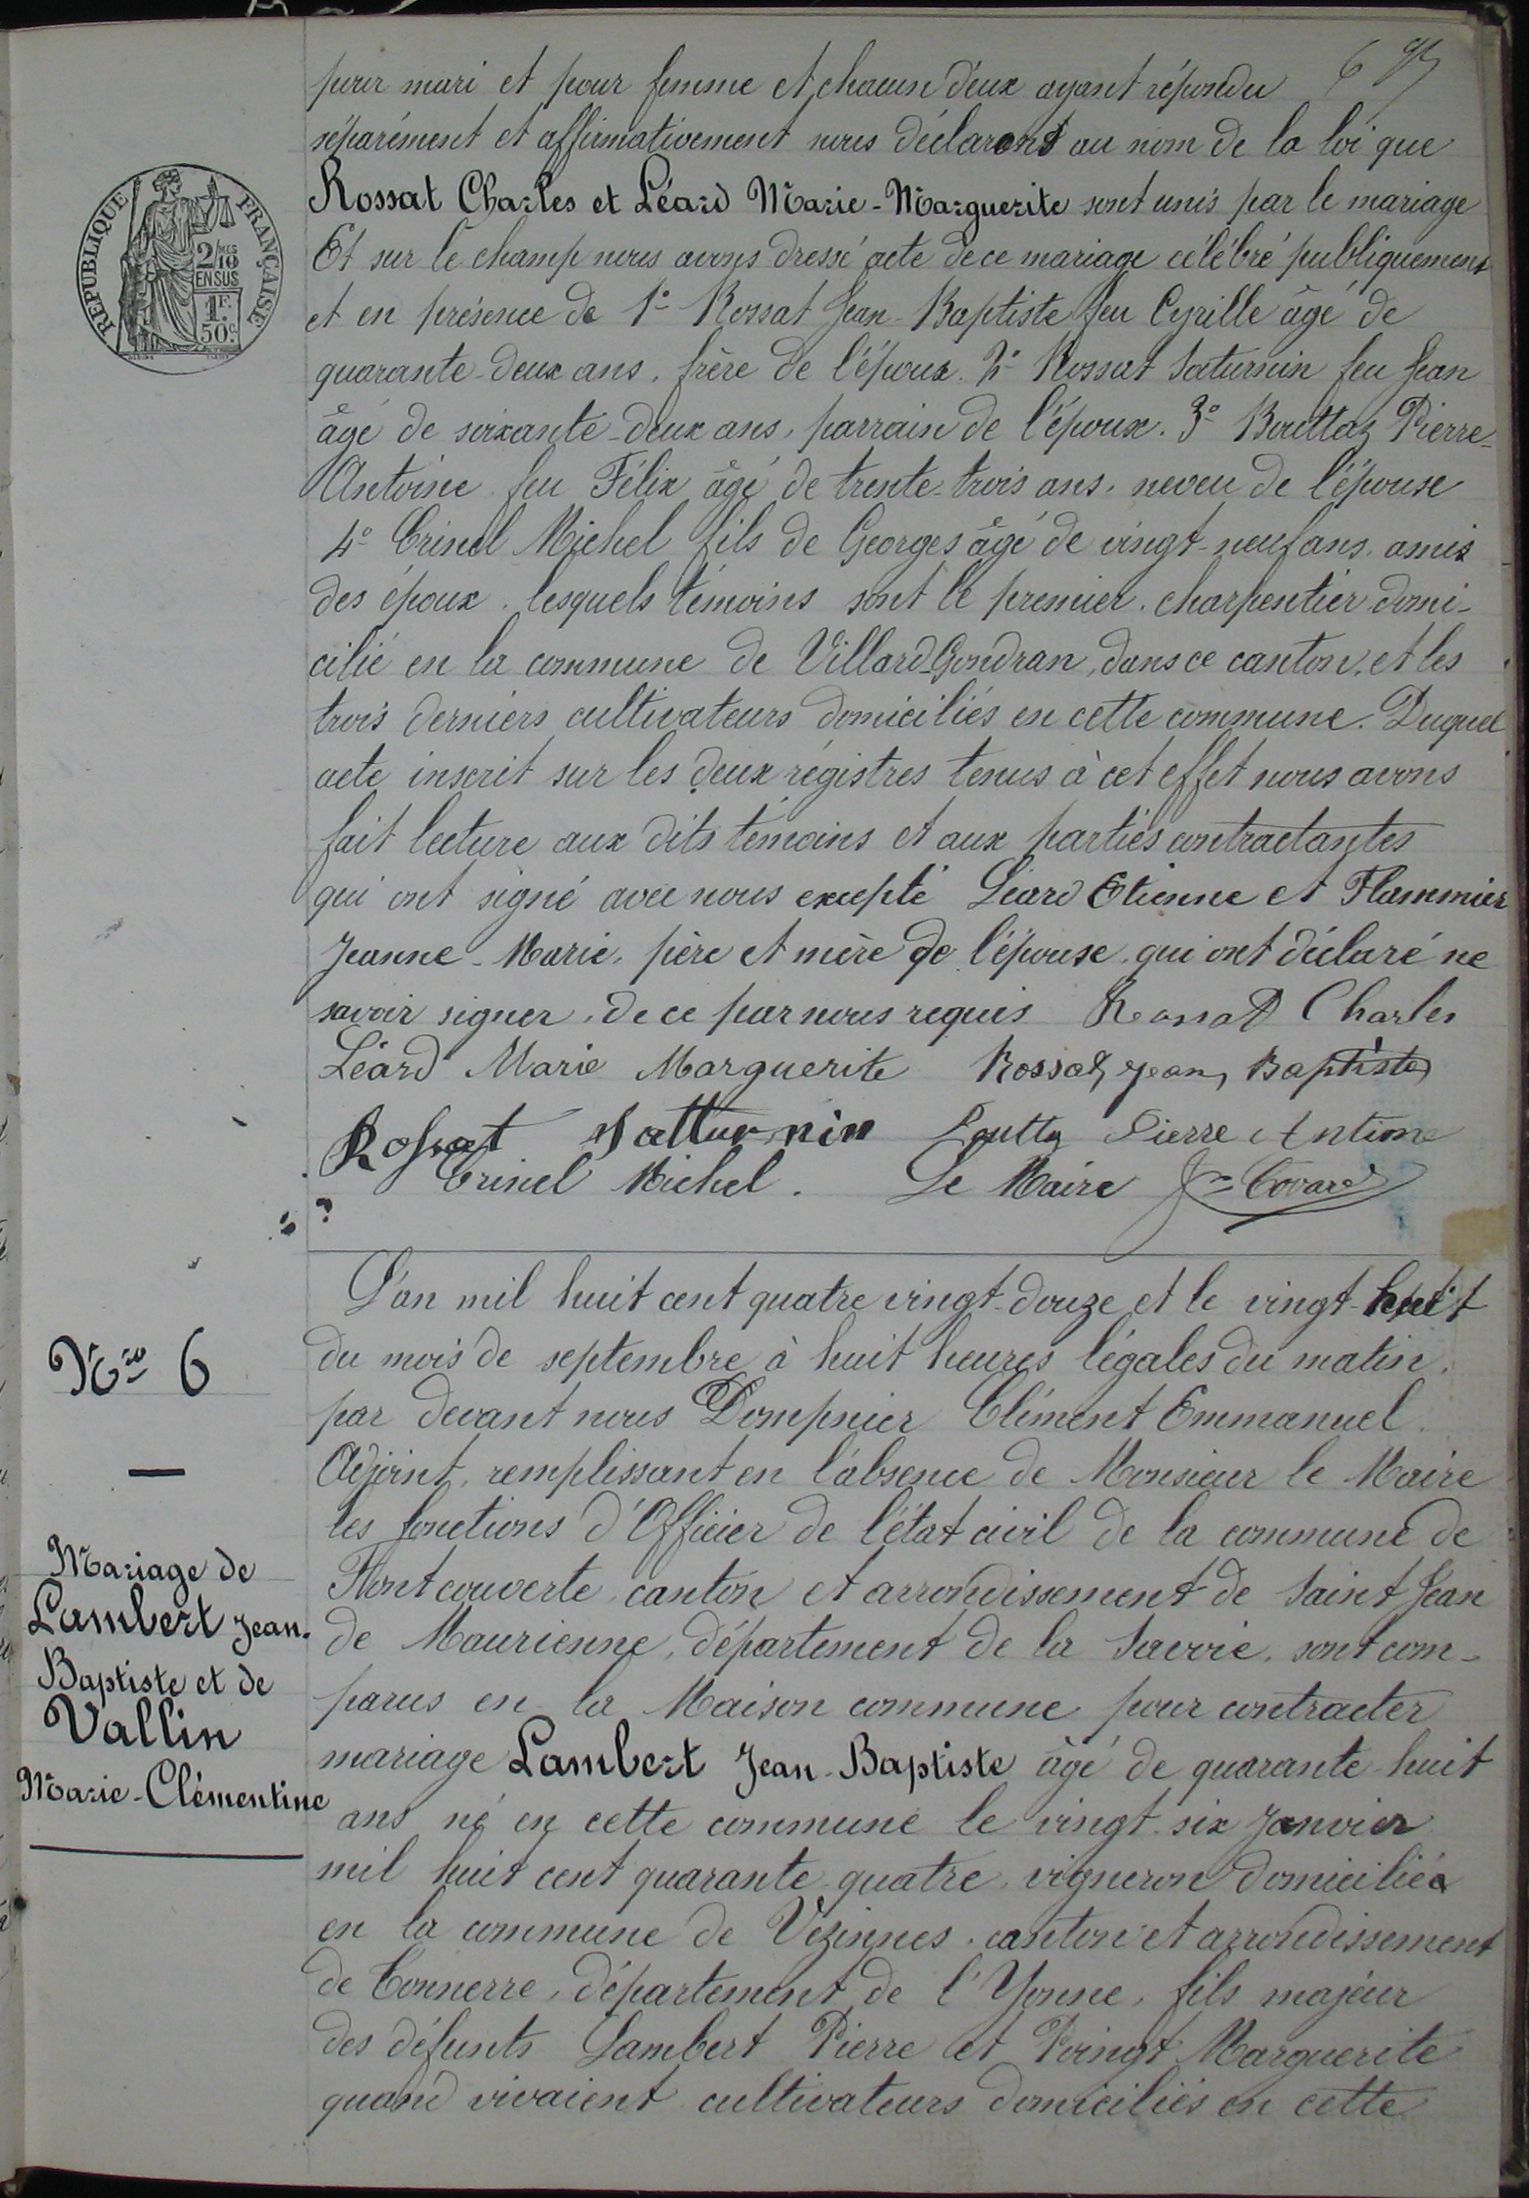 pour mari et pour femme et chacun d'eux ayant répondu
séparément et affirmativement nous déclarons au nom de la loi que
Rossat Charles et Léard Marie-Marguerite sont unis par le mariage
Et sur le champ nous avons dressé acte de ce mariage célébré publiquement
et en présence de 1° Rossat Jean-Baptiste feu Cyrille âgé de
quarante-deux ans, frère de l'époux. 2° Rossat Saturnin feu Jean
âgé de soixante-deux ans, parrain de l'époux. 3° Bouttaz Pierre-
Antoine feu Félix âgé de trente-trois ans, neveu de l'épouse
4° Crinel Michel fils de Georges âgé de vingt-neuf ans, amis
des époux, lesquels témoins sont le premier, charpentier domi-
cilié en la commune de Villard-Gondran, dans ce canton, et les
trois derniers cultivateurs domiciliés en cette commune. Duquel
acte inscrit sur les deux régistres tenus à cet effet nous avons
fait lecture aux dits témoins et aux parties contractantes
qui ont signé avec nous excepté Léard Etienne et Flammier
Jeanne-Marie, père et mère de l'épouse, qui ont déclaré ne
savoir signer, de ce par nous requis Rossat Charles
Léard Marie Marguerite Rossat Jean Baptiste
Rossat Satturnin Pierre Antione
Crinel Michel. Le Maire
REPUBLIQUE FRANÇAISE
2/10
EN SUS
1F.
50c.
Nro 6
Mariage de
Lambert Jean-
Baptiste et de
Vallin
Marie-Clémentine
L'an mil huit cent quatre vingt-douze et le vingt-huit
du mois de septembre à huit heures légales du matin,
par devant nous Dompnier Clément Emmanuel
Adjoint, remplissant en l'absence de Monsieur le Maire
les fonctions d'Officier de l'état civil de la commune de
Fontcouverte, canton et arrondissement de Saint Jean
de Maurienne, département de la Savoie, sont com-
parus en la Maison commune pour contracter
mariage Lambert Jean-Baptiste âgé de quarante-huit
ans né en cette commune le vingt-six janvier
mil huit cent quarante-quatre, vigneron domicilié
en la commune de Vézinnes, canton et arrondissement
de Tonnerre, département de l'Yonne, fils majeur
des défunts Lambert Pierre et Poingt Marguerite
quand vivaient cultivateurs domiciliés en cette